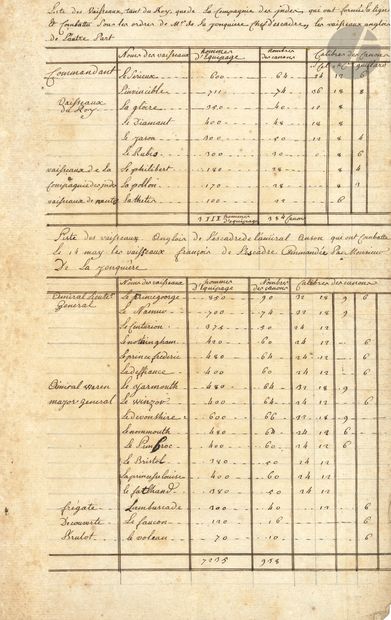 Liste des Vaisseaux tant du Roy, que de la Compagnie des Jndes, qui ont formés la ligne
& Combattu Sous les ordres de Mr. de la Jonquiere Chef Descadre, les vaisseaux anglois
de l'autre Part
Noms des vaisseaux hommes d'Equipage Nombres des canons Calibres des Canons
Commandant Le Serieux 600 64 24 12 6
Vaisseaux du Roy L'invincible 711 74 36 18 8
La gloire 350 40 18 8
Le diamant 400 48 18 8
Le jason 300 50 12 8 4
Le Rubis 300 8 6
vaisseaux de la Le philibert 180 28 8 4
Compagnie des Jndes L'apollon 170 28 8
vaisseaux de Nantes La thetis 100 6
3111 hommes d'equipage 384 Canons
Liste des vaisseaux Anglois de L'escadre de L'amiral Anson qui ont Combattu
le 14 may les vaisseaux françois de L'escadre Commandée Par Monsieur
De la Jonquiere
Noms des vaisseaux hommes d'Equipage Nombres des canons Calibres des canons
Admiral Lieutt. General Le princegeorge 850 90 32 18 9 6
Le Namur 700 74 32 18 9
Le Centurion 375 50 24 12
Le nottingham 420 60 24 12 6
Le prence frederic 480 64 24 12 6
Le deffiance 400 60 24 12 6
Admiral Waren Le yarmouth 480 64 32 18 9
major General Le Winzor 400 64 24 12 6
Le devonshire 600 66 32 18 9
Le monmouth 480 64 24 12 6
Le Pembroc 400 60 24 12 6
Le Bristol 380 50 24 12
La princesse louise 400 60 24 12
Le falkland 380 50 24 12
frégate L'ambuscade 300 40 12 6
Decouverte Le faucon 120 16 6
Brulot Le voleau 70 10 6
7235 938